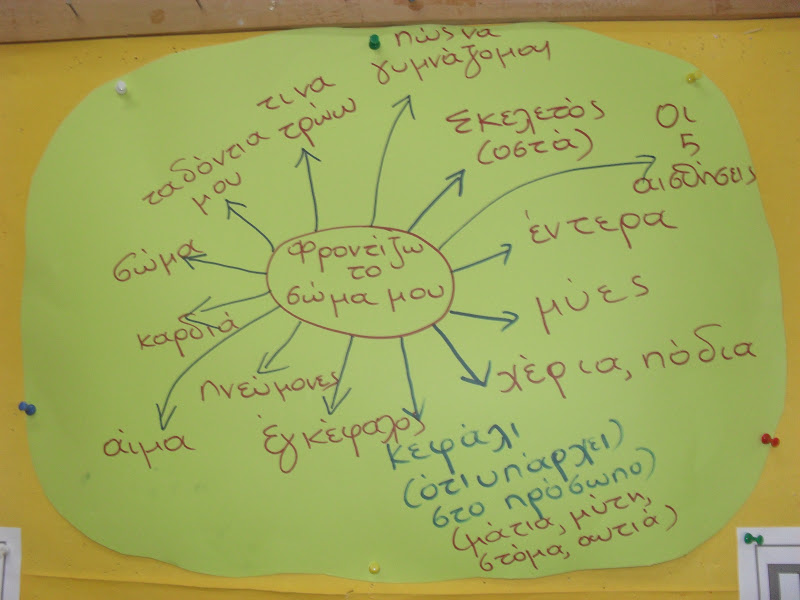 Φροντίζω
το
σώμα μου
πώς να
γυμνάζομαι
Σκελετός
(οστά)
Οι
5
αισθήσεις
έντερα
μύες
χέρια, πόδια
κεφάλι
(ότι υπάρχει
στο πρόσωπο)
(μάτια, μύτη,
στόμα, αυτιά)
έγκέφαλος
πνεύμονες
άιμα
καρδιά
σώμα
τα δόντια
μου
τι να
τρώω